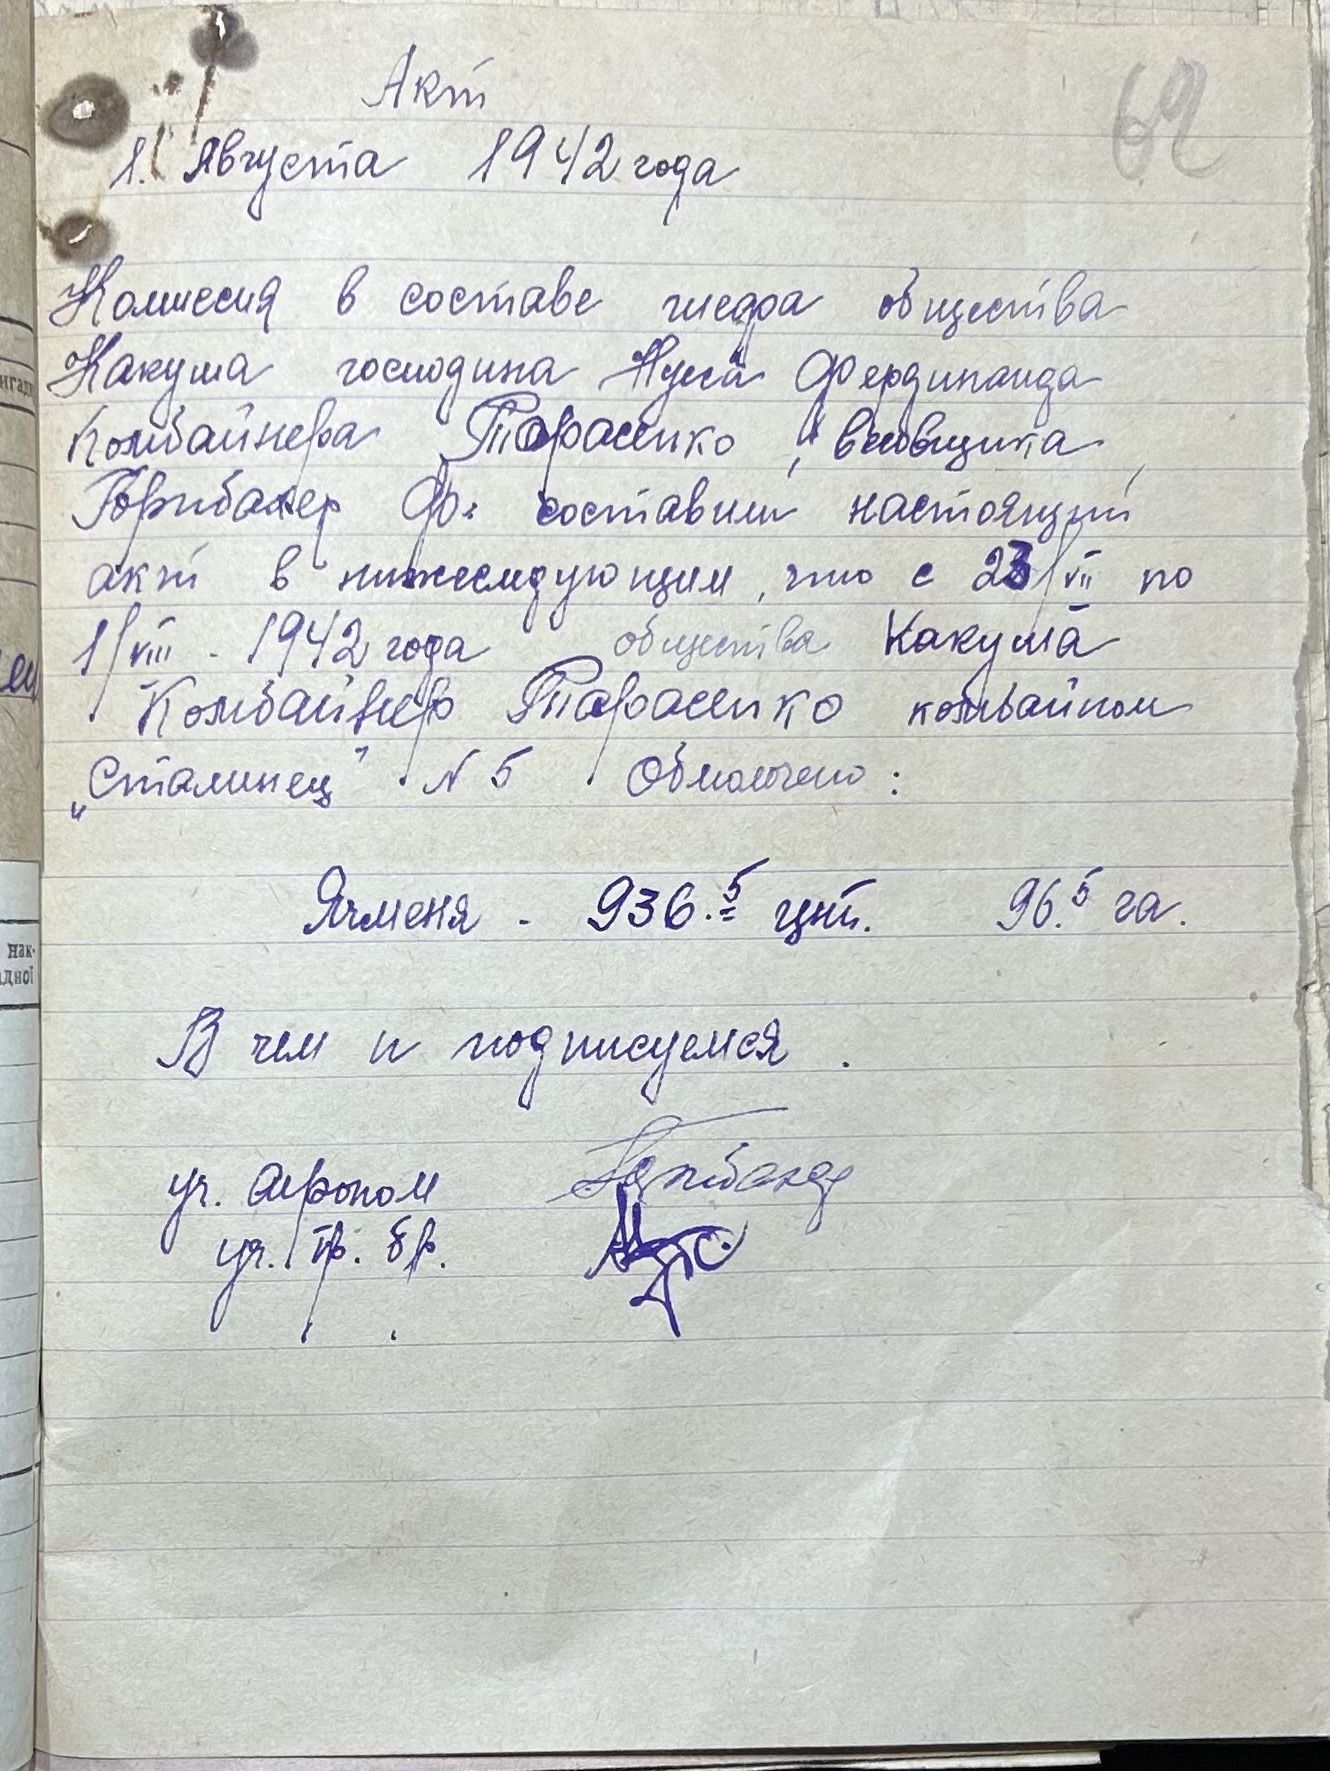 62
Акт
1. Августа 1942 года
Комиссия в составе шефа общества
Какуша господина Нусс Фердинанда
Комбайнера Тарасенко, весовщика
Фр. составили настоящий
акт в нижеследующем, что с 23/VII по
1/VIII - 1942 года общества Какуша
Комбайнер Тарасенко комбайном
„Сталинец" N 5 Обмолочено:
Ячменя - 936.5 цнт. 96.5 га.
В чем и подписуемся.
уч. агроном
уч. тр. бр.
нак-
адної